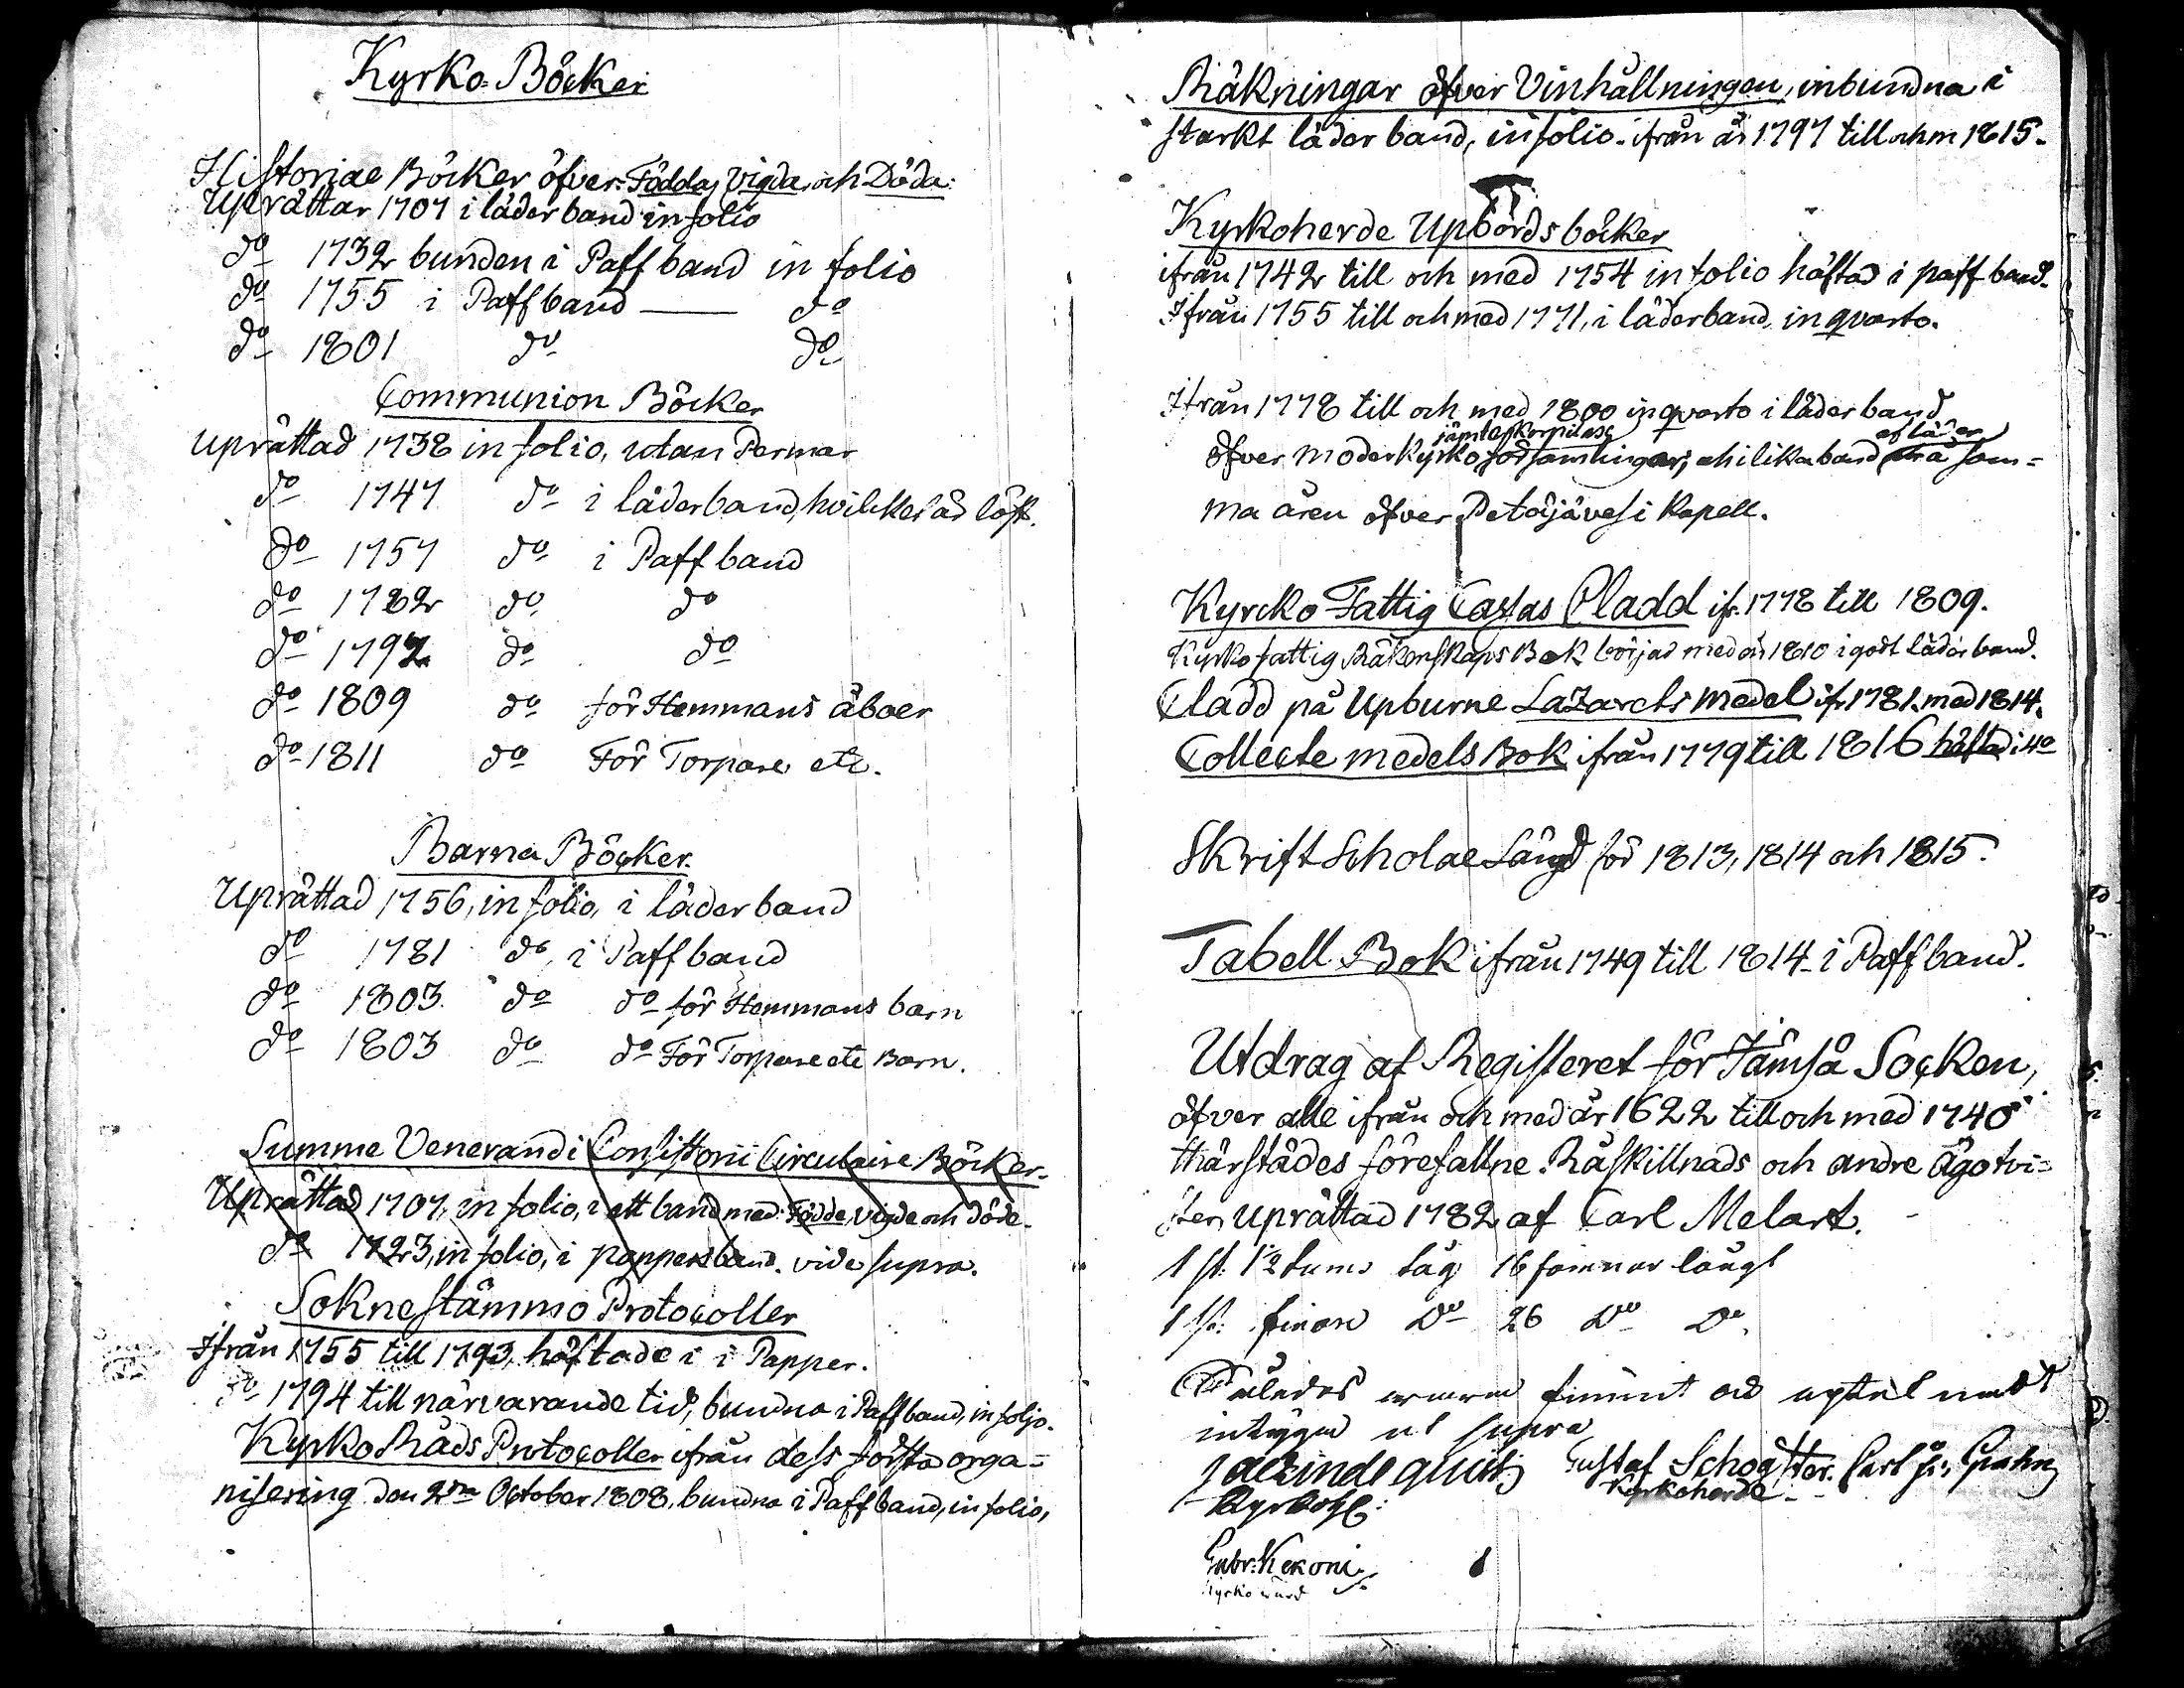 Kyrko-Böcker
Historiae Böcker öfver Födda, Vigda och Döda:
Uprättar 1707 i läderband in folio
do 1732 bunden i Paffband in folio
do 1755 i Paffband — do
do 1801 do do
Communion Böcker
Uprättad 1738 in folio, utan Permar
do 1747 do i läderband, hvilcket är löst.
do 1757 do i Paffband
do 1782 do do
do 1792 do do
do 1809 do för Hemmans åboer
do 1811 do För Torpare etc.
Barna Böcker.
Uprättad 1756, in folio, i läderband
do 1781 do, i Paffband
do 1803 do do för Hemmans barn
do 1803 do do För Torpare etc Barn.
Summe Venerandi Consistorii Circulaire Böcker.
Uprättad 1707, in folio, i ett band med Födde, vigde och döde.
do 1723, in folio, i pappersband. vide supra.
Soknestämmo Protocoller
Ifrån 1755 till 1793, häftade i i Papper.
do 1794 till närvarande tid, bundna i Paffband, in folio.
KyrkoRåds Protocoller ifrån dess första orga=
nisering den 2dra October 1808, bundna i Paffband, in folio,
Räkningar öfver Vinhållningen, inbundna i
starkt läder band, in folio. ifrån år 1797 till och m 1815.
Kyrkoherde Upbördsböcker
ifrån 1742 till och med 1754 in folio häftad i paffband.
Ifrån 1755 till och med 1771, i läderband, in qvarto.
Ifrån 1778 till och med 1800 in qvarto i läderband
jämte Korpilax af läder
öfver Moderkyrko församlingen; och i lika band från sam=
ma åren öfver Petäjävesi Kapell.
Kyrcko Fattig Cassas Cladd ifr. 1778 till 1809.
Kyrko fattig Räkenskaps Bok börjad med år 1810 i godt läderband.
Cladd på Upburne Lazarets medel ifr 1781. med 1814.
Collecte medels Bok ifrån 1779 till 1816 häftad i 4o
Skrift Scholae Längd för 1813, 1814 och 1815.
Tabell Bok ifrån 1749 till 1814 i Paffband.
Utdrag af Registeret för Jämsä Socken,
öfver alle ifrån och med år 1622 till och med 1740
thärstädes förefallne Råskillnads och andre Ägotvi=
ster, uprättad 1782 af Carl Melart.
1 st. 1½ tums tåg 16 famnar långt
1 st. finare Do 26 Do Do
Således
intygar ut supra
Gustaf Schogster. Carl Fr. Grahn
Kyrkoherde
Gabr. Kekoni
Kyrko värd